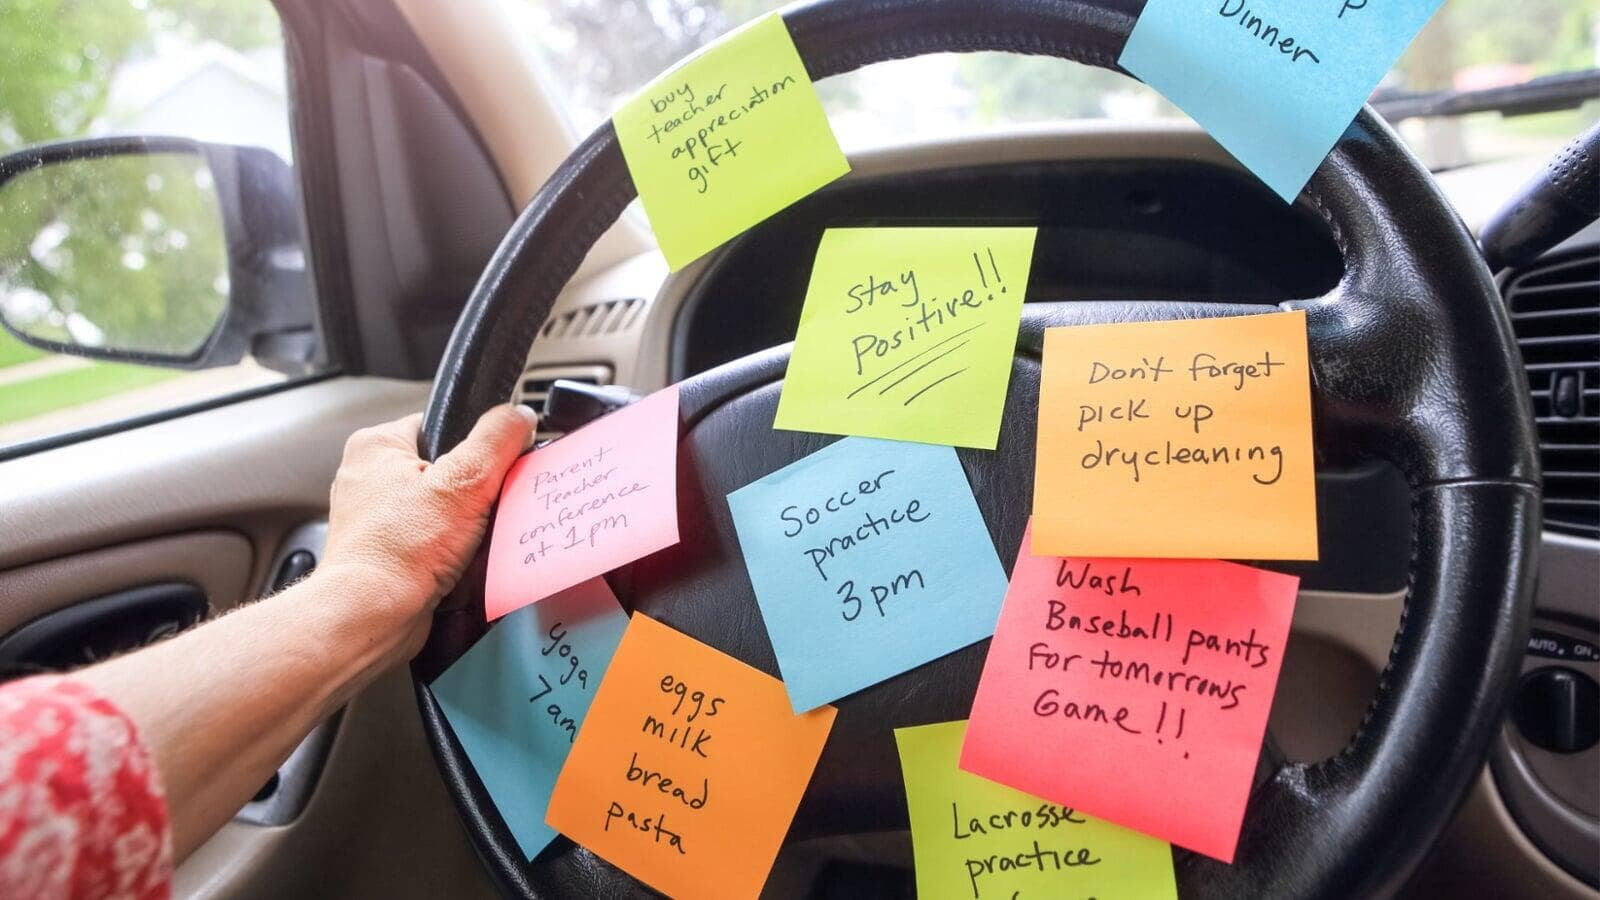 Dinner
buy
teacher
appreciation
gift
Stay
Positive!!
Don't forget
pick up
drycleaning
Parent
Teacher
conference
at 1pm
Soccer
practice
3pm
Wash
Baseball pants
for tomorrows
Game!!
yoga
7am
eggs
milk
bread
pasta
Lacrosse
practice
AUTO ON